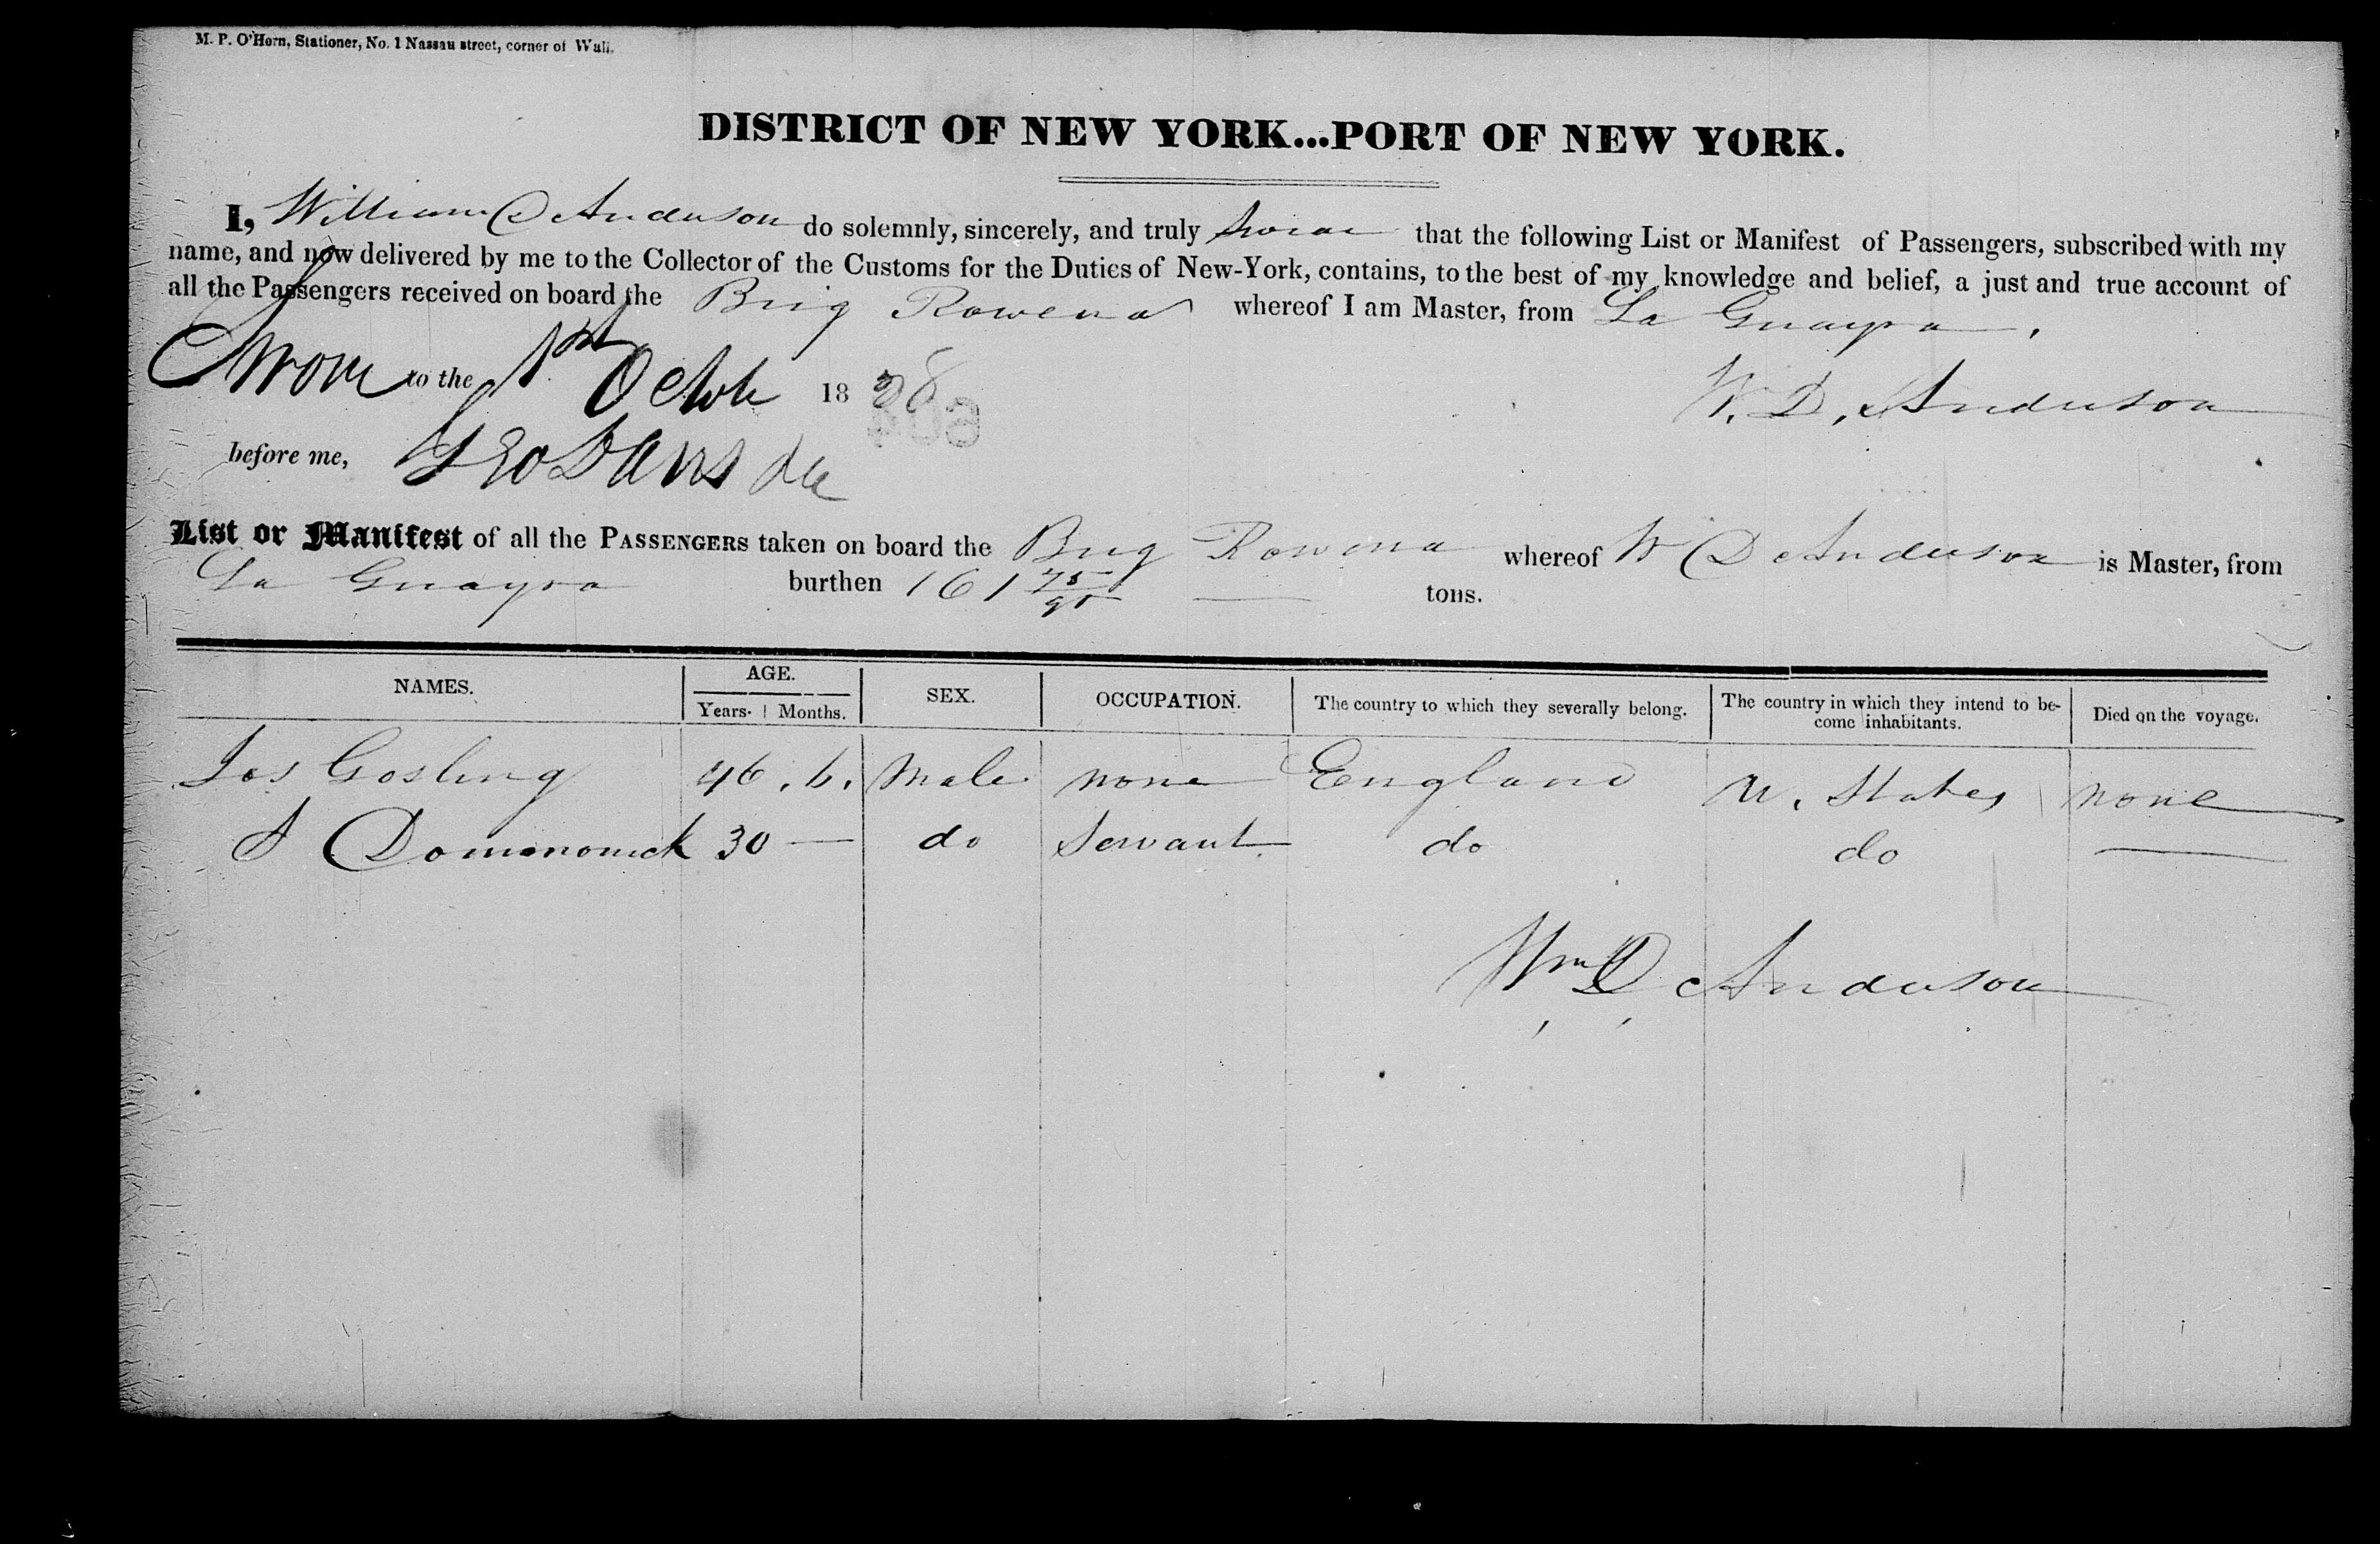 M. P. O'Horn, Stationer, No. 1 Nassau street, corner of Wall.
DISTRICT OF NEW YORK...PORT OF NEW YORK.
I, William D Anderson do solemnly, sincerely, and truly swear that the following List or Manifest of Passengers, subscribed with my
name, and now delivered by me to the Collector of the Customs for the Duties of New-York, contains, to the best of my knowledge and belief, a just and true account of
all the Passengers received on board the Brig Rowena whereof I am Master, from La Guayra.
Sworn to the 1st Octbr 1838
W. D. Anderson
before me, Geo Davis
List or Manifest of all the PASSENGERS taken on board the Brig Rowena whereof W D Anderson is Master, from
La Guayra burthen 161 75/95 tons.
NAMES. AGE. SEX. OCCUPATION. The country to which they severally belong. The country in which they intend to be- Died on the voyage.
Years. Months. come inhabitants.
Jos Gosling 46. 6. Male none England U. States none
A Domononick 30 — do Servant do do —
Wm D Anderson